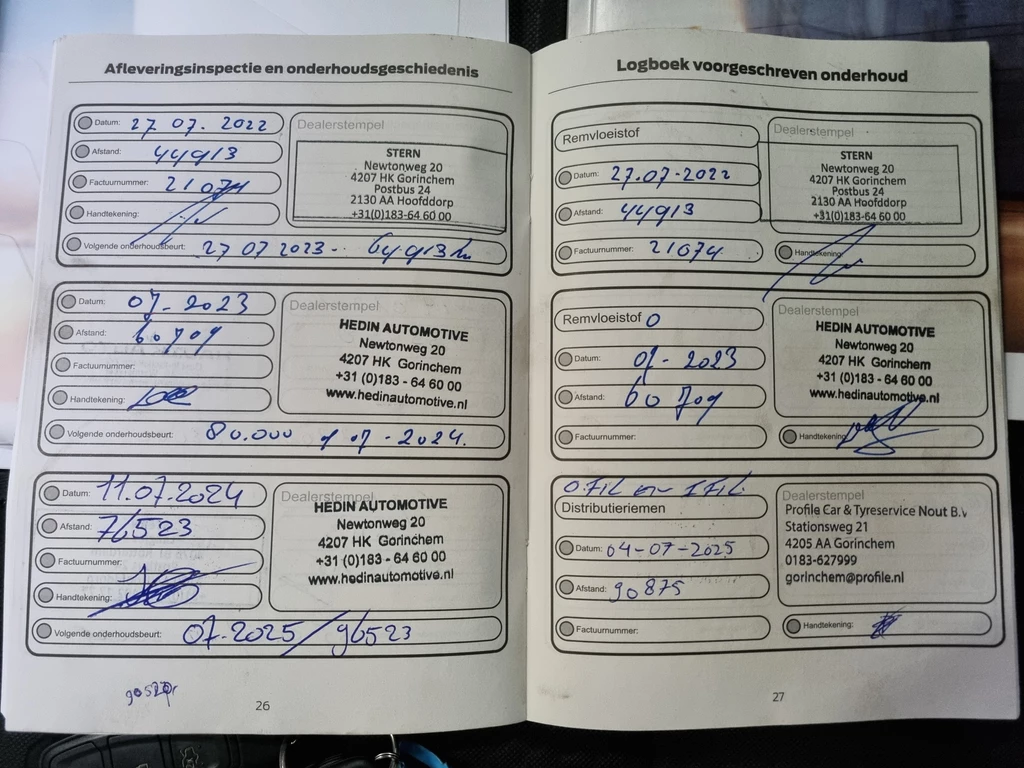 Afleveringsinspectie en onderhoudsgeschiedenis
Datum: 27 07. 2022
Afstand: 44913
Factuurnummer: 21074
Handtekening:
Volgende onderhoudsbeurt: 27 07 2023 - 64.913 km
Dealerstempel
STERN
Newtonweg 20
4207 HK Gorinchem
Postbus 24
2130 AA Hoofddorp
+31(0)183-64 60 00
Datum: 07-2023
Afstand: 60709
Factuurnummer:
Handtekening:
Volgende onderhoudsbeurt: 80.000 of 07-2024.
Dealerstempel
HEDIN AUTOMOTIVE
Newtonweg 20
4207 HK Gorinchem
+31 (0)183 - 64 60 00
www.hedinautomotive.nl
Datum: 11.07.2024
Afstand: 76523
Factuurnummer:
Handtekening:
Volgende onderhoudsbeurt: 07.2025/96523
Dealerstempel
HEDIN AUTOMOTIVE
Newtonweg 20
4207 HK Gorinchem
+31 (0)183 - 64 60 00
www.hedinautomotive.nl
26
Logboek voorgeschreven onderhoud
Remvloeistof
Datum: 27.07-2022
Afstand: 44913
Factuurnummer: 21074
Dealerstempel
STERN
Newtonweg 20
4207 HK Gorinchem
Postbus 24
2130 AA Hoofddorp
+31(0)183-64 60 00
Handtekening:
Remvloeistof O
Datum: 07-2023
Afstand: 60709
Factuurnummer:
Dealerstempel
HEDIN AUTOMOTIVE
Newtonweg 20
4207 HK Gorinchem
+31 (0)183 - 64 60 00
www.hedinautomotive.nl
Handtekening:
O.FIL en I FIL.
Distributieriemen
Datum: 04-07-2025
Afstand: 90875
Factuurnummer:
Dealerstempel
Profile Car & Tyreservice Nout B.V
Stationsweg 21
4205 AA Gorinchem
0183-627999
gorinchem@profile.nl
Handtekening:
27